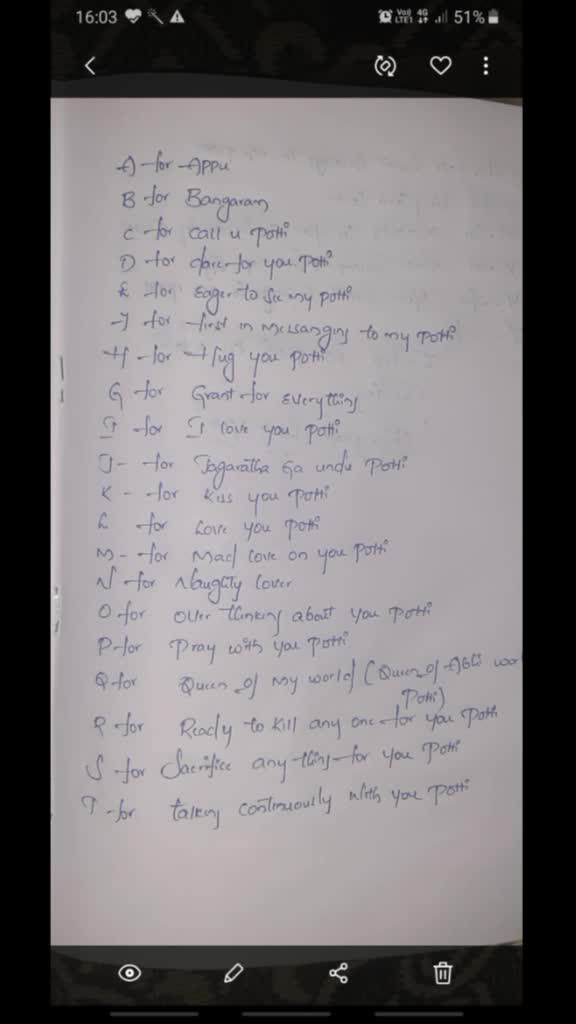 16:03 VoD LTE1 4G 51%
A-for-Appu
B for Bangaram
C for call u potti
D for dare for you potti
E for Eager to see my potti
F for first in messanging to my potti
H-for-Hug you potti
G for Grant for everything
I for I love you potti
J- for Jagaratha Ga undu potti
K- for Kiss you potti
L for Love you potti
M- for Mad love on you potti
N for Naughty lover
O for over thinking about you potti
P-for Pray with you potti
Q for Queen of my world (Queen of
potti)
R for Ready to kill any one for you potti
S for Sacrifice any thing for you potti
T for talking continuously with you potti